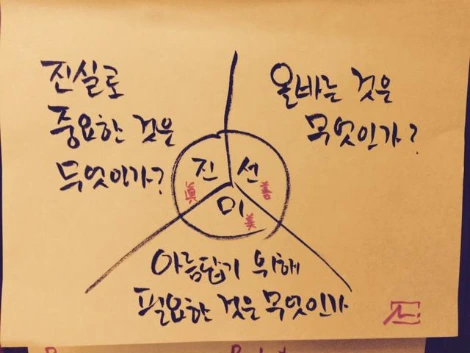 진실로
중요한 것은
무엇이가?
올바른 것은
무엇인가?
진 선
眞 善
미
美
아름답기 위해
필요한 것은 무엇인가